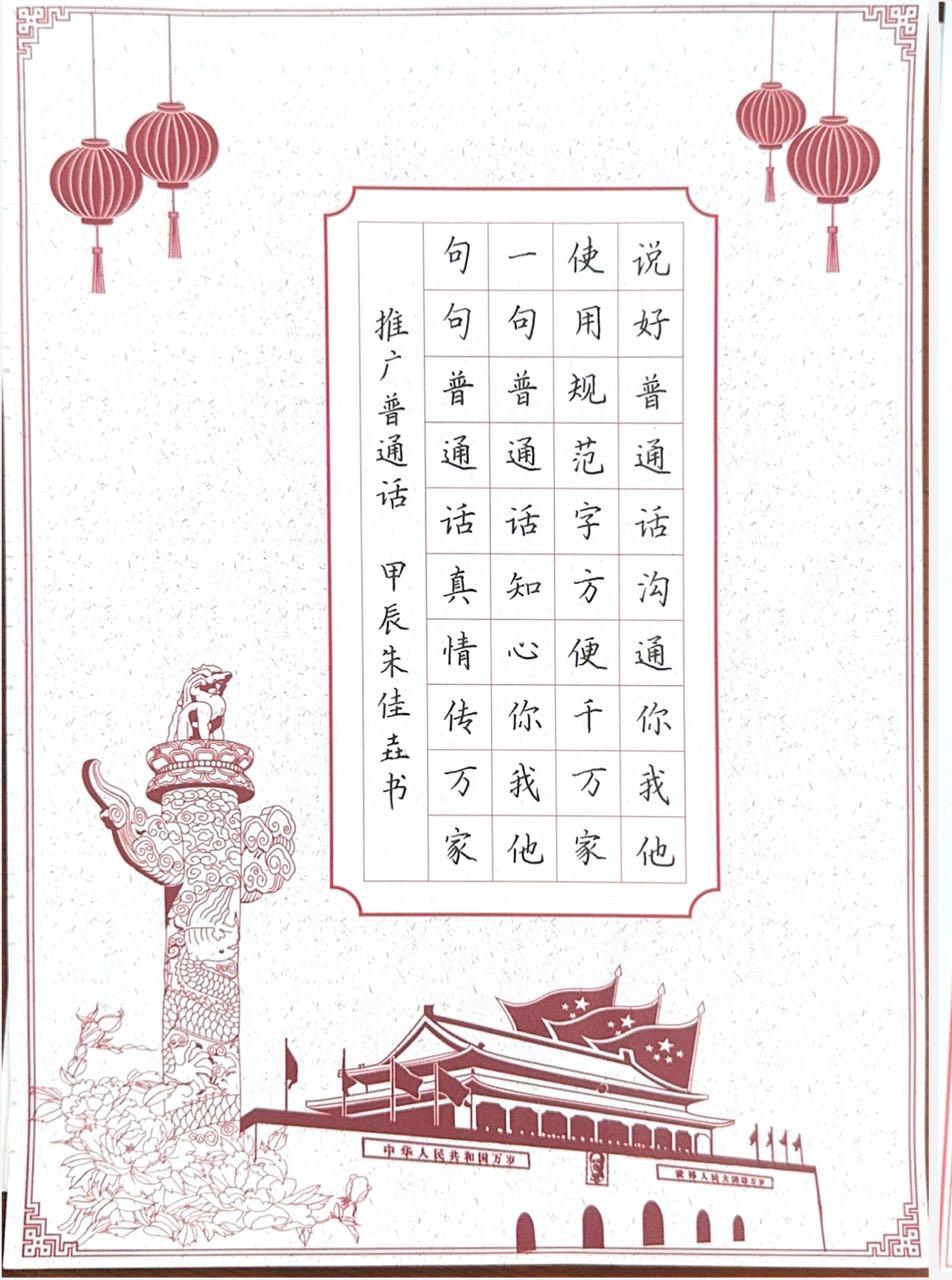 说好普通话沟通你我他
使用规范字方便千万家
一句普通话知心你我他
句句普通话真情传万家
推广普通话 甲辰朱佳垚书
中华人民共和国万岁
世界人民大团结万岁